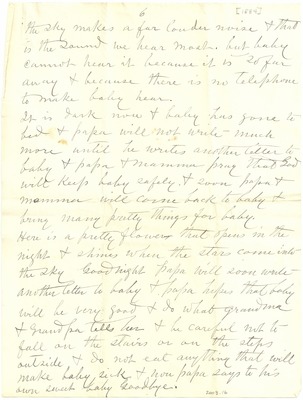 6
[1884]
the sky makes a far louder noise & that
is the sound we hear most. but baby
cannot hear it because it is so far
away & because there is no telephone
to make baby hear.
It is dark now & baby has gone to
bed & papa will not write much
more until he writes another letter to
baby & papa & mamma pray that God
will keep baby safely. & soon papa &
mamma will come back to baby &
bring many pretty things for baby.
Here is a pretty flower that opens in the
night & shines when the stars come into
the sky Goodnight papa will soon write
another letter to baby & papa hopes that baby
will be very good & do what grandma
& Grandpa tells her & be careful not to
fall on the stairs or on the steps
outside & do not eat anything that will
make baby sick & now papa says to his
own sweet baby Goodbye.